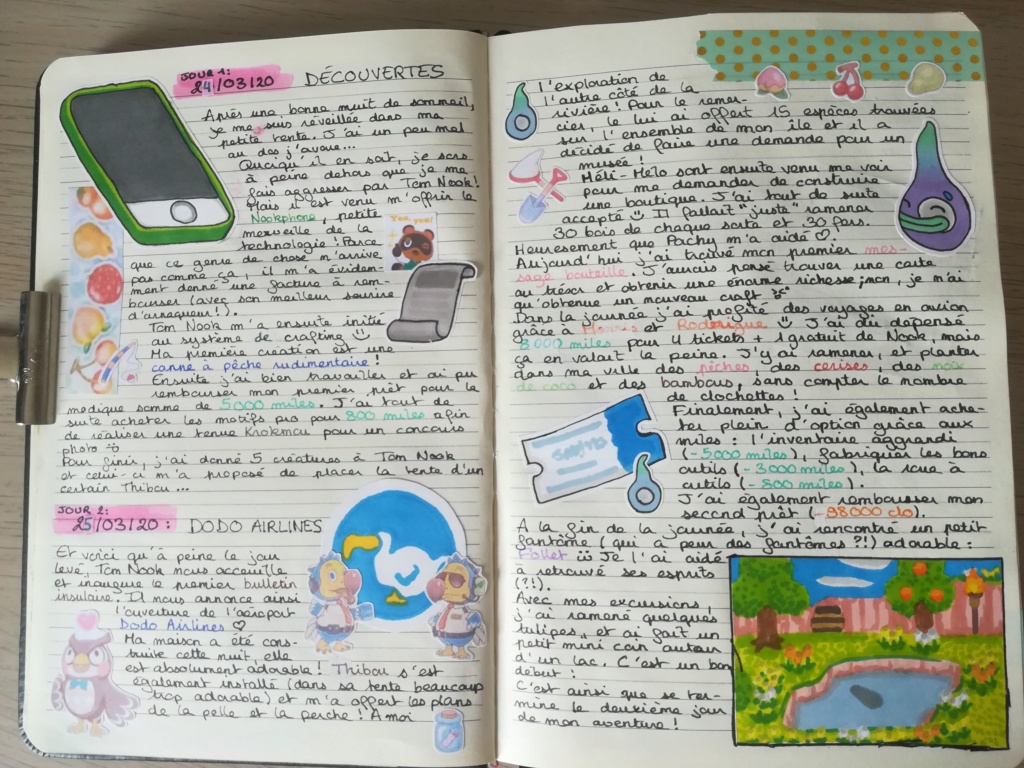 JOUR 1:
24/03/20
DÉCOUVERTES
Après une bonne nuit de sommeil,
je me suis réveillée dans ma
petite tente. J'ai un peu mal
au dos j'avoue...
Quoiqu'il en soit, je sors
à peine dehors que je me
fais aggresser par Tom Nook!
Mais il est venu m'offrir le
Nookphone, petite
merveille de la
technologie! Parce
que ce genre de chose n'arrive
pas comme ça, il m'a éviden-
ment donné une facture à rem-
bourser (avec son meilleur sourire
d'arnaqueur!).
Tom Nook m'a ensuite initié
au système de crafting
Ma première création est une
canne à pêche rudimentaire!
Ensuite j'ai bien travailler et ai pu
rembourser mon premier prêt pour la
modique somme de 5000 miles. J'ai tout de
suite acheter les motifs pro pour 800 miles afin
de réaliser une tenue Krokmou pour un concours
photo
Pour finir, j'ai donné 5 créatures à Tom Nook
et celui-ci m'a proposé de placer la tente d'un
certain Thibou...
Yes, yes!
JOUR 2:
25/03/20:
DODO AIRLINES
Et voici qu'à peine le jour
levé, Tom Nook nous accueille
et inaugure le premier bulletin
insulaire. Il nous annonce ainsi
l'ouverture de l'aéroport
Dodo Airlines ♡
Ma maison a été cons-
truite cette nuit, elle
est absolument adorable! Thibou s'est
également installé (dans sa tente beaucoup
trop adorable) et m'a offert les plans
de la pelle et la perche! A moi
l'exploration de
l'autre côté de la
rivière! Pour le remer-
cier, le lui ai offert 15 espèces trouvées
sur l'ensemble de mon île et il a
décidé de faire une demande pour un
musée!
Méli-Mélo sont ensuite venu me voir
pour me demander de construire
une boutique. J'ai tout de suite
accepté Il fallait "juste" ramener
30 bois de chaque sorte et 30 fers.
Heureusement que Pachy m'a aidé ♡!
Aujourd'hui j'ai trouvé mon premier mes-
sage bouteille. J'aurais pensé trouver une carte
au trésor et obtenir une énorme richesse; non, je n'ai
qu'obtenue un nouveau craft
Dans la journée j'ai profité des voyages en avion
grâce à Morris et Rodrigue J'ai dû dépensé
8000 miles pour 4 tickets + 1 gratuit de Nook, mais
ça en valait la peine. J'y ai ramener, et planter
dans ma ville des pêches, des cerises, des noix
de coco et des bambous, sans compter le nombre
de clochettes!
Finalement, j'ai également ache-
ter plein d'option grâce aux
miles: l'inventaire aggrandi
(-5000 miles), fabriquer les bons
outils (-3000 miles), la roue à
outils (-800 miles).
J'ai également rembourser mon
second prêt (-98000 clo).
A la fin de la journée, j'ai rencontré un petit
fantôme (qui a peur des fantômes ?!) adorable:
Follet Je l'ai aidé
à retrouvé ses esprits
(?!)
Avec mes excursions,
j'ai ramené quelques
tulipes, et ai fait un
petit mini coin autour
d'un lac. C'est un bon
début!
C'est ainsi que se ter-
mine le deuxième jour
de mon aventure!